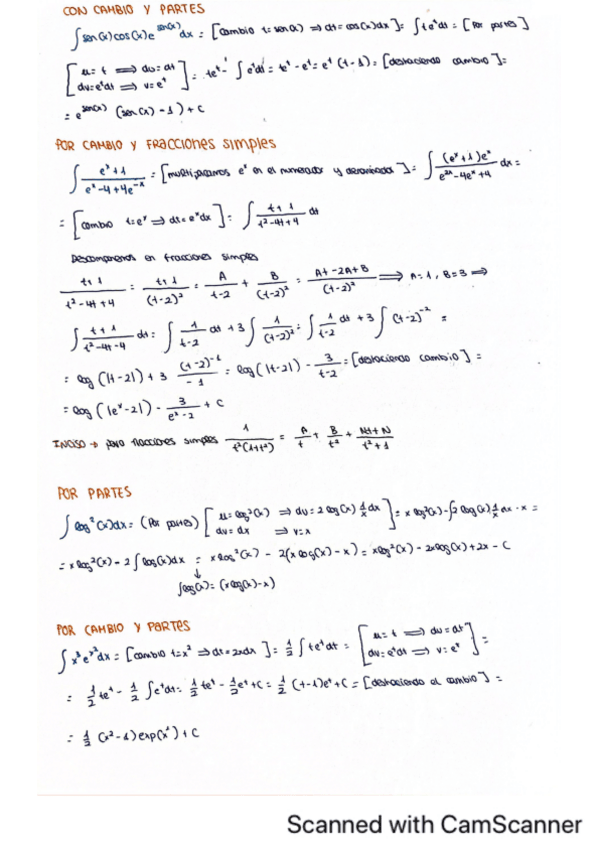 CON CAMBIO Y PARTES
∫ sen(x)cos(x)e^{sen(x)} dx = [cambio t=sen(x) ⟹ dt=cos(x)dx] = ∫ t e^t dt = [Por partes]
[u=t ⟹ du=dt ; dv=e^t dt ⟹ v=e^t] = te^t - ∫ e^t dt = te^t - e^t = e^t (t-1) = [deshaciendo cambio] =
= e^{sen(x)} (sen(x)-1) + C
POR CAMBIO Y FRACCIONES Simples
∫ (e^x+1)/(e^x-4+4e^{-x}) = [multiplicamos e^x en el numerador y denominador] = ∫ ((e^x+1)e^x)/(e^{2x}-4e^x+4) dx =
= [cambio t=e^x ⟹ dt=e^x dx] = ∫ (t+1)/(t²-4t+4) dt
Descomponemos en fracciones simples
(t+1)/(t²-4t+4) = (t+1)/(t-2)² = A/(t-2) + B/(t-2)² = (At-2A+B)/(t-2)² ⟹ A=1, B=3 ⟹
∫ (t+1)/(t²-4t-4) dt = ∫ 1/(t-2) dt + 3 ∫ 1/(t-2)² = ∫ 1/(t-2) dt + 3 ∫ (t-2)^{-2} =
= log(|t-2|) + 3 (t-2)^{-1}/-1 = log(|t-2|) - 3/(t-2) = [deshaciendo cambio] =
= log(|e^x-2|) - 3/(e^x-2) + C
INCISO → para fracciones simples 1/(t²(1+t²)) = A/t + B/t² + (Mt+N)/(t²+1)
POR PARTES
∫ log²(x)dx = (Por partes) [u=log²(x) ⟹ du=2log(x) 1/x dx ; dv=dx ⟹ v=x] = x log²(x) - ∫ 2 log(x) 1/x dx · x =
= x log²(x) - 2 ∫ log(x)dx = x log²(x) - 2(x log(x) - x) = x log²(x) - 2x log(x) + 2x - C
↓
∫ log(x) = (x log(x) - x)
POR CAMBIO Y PARTES
∫ x³e^{x²} dx = [cambio t=x² ⟹ dt=2xdx] = 1/2 ∫ t e^t dt = [u=t ⟹ du=dt ; dv=e^t dt ⟹ v=e^t] =
= 1/2 te^t - 1/2 ∫ e^t dt = 1/2 te^t - 1/2 e^t + C = 1/2 (t-1)e^t + C = [deshaciendo el cambio] =
= 1/2 (x²-1) exp(x²) + C
Scanned with CamScanner